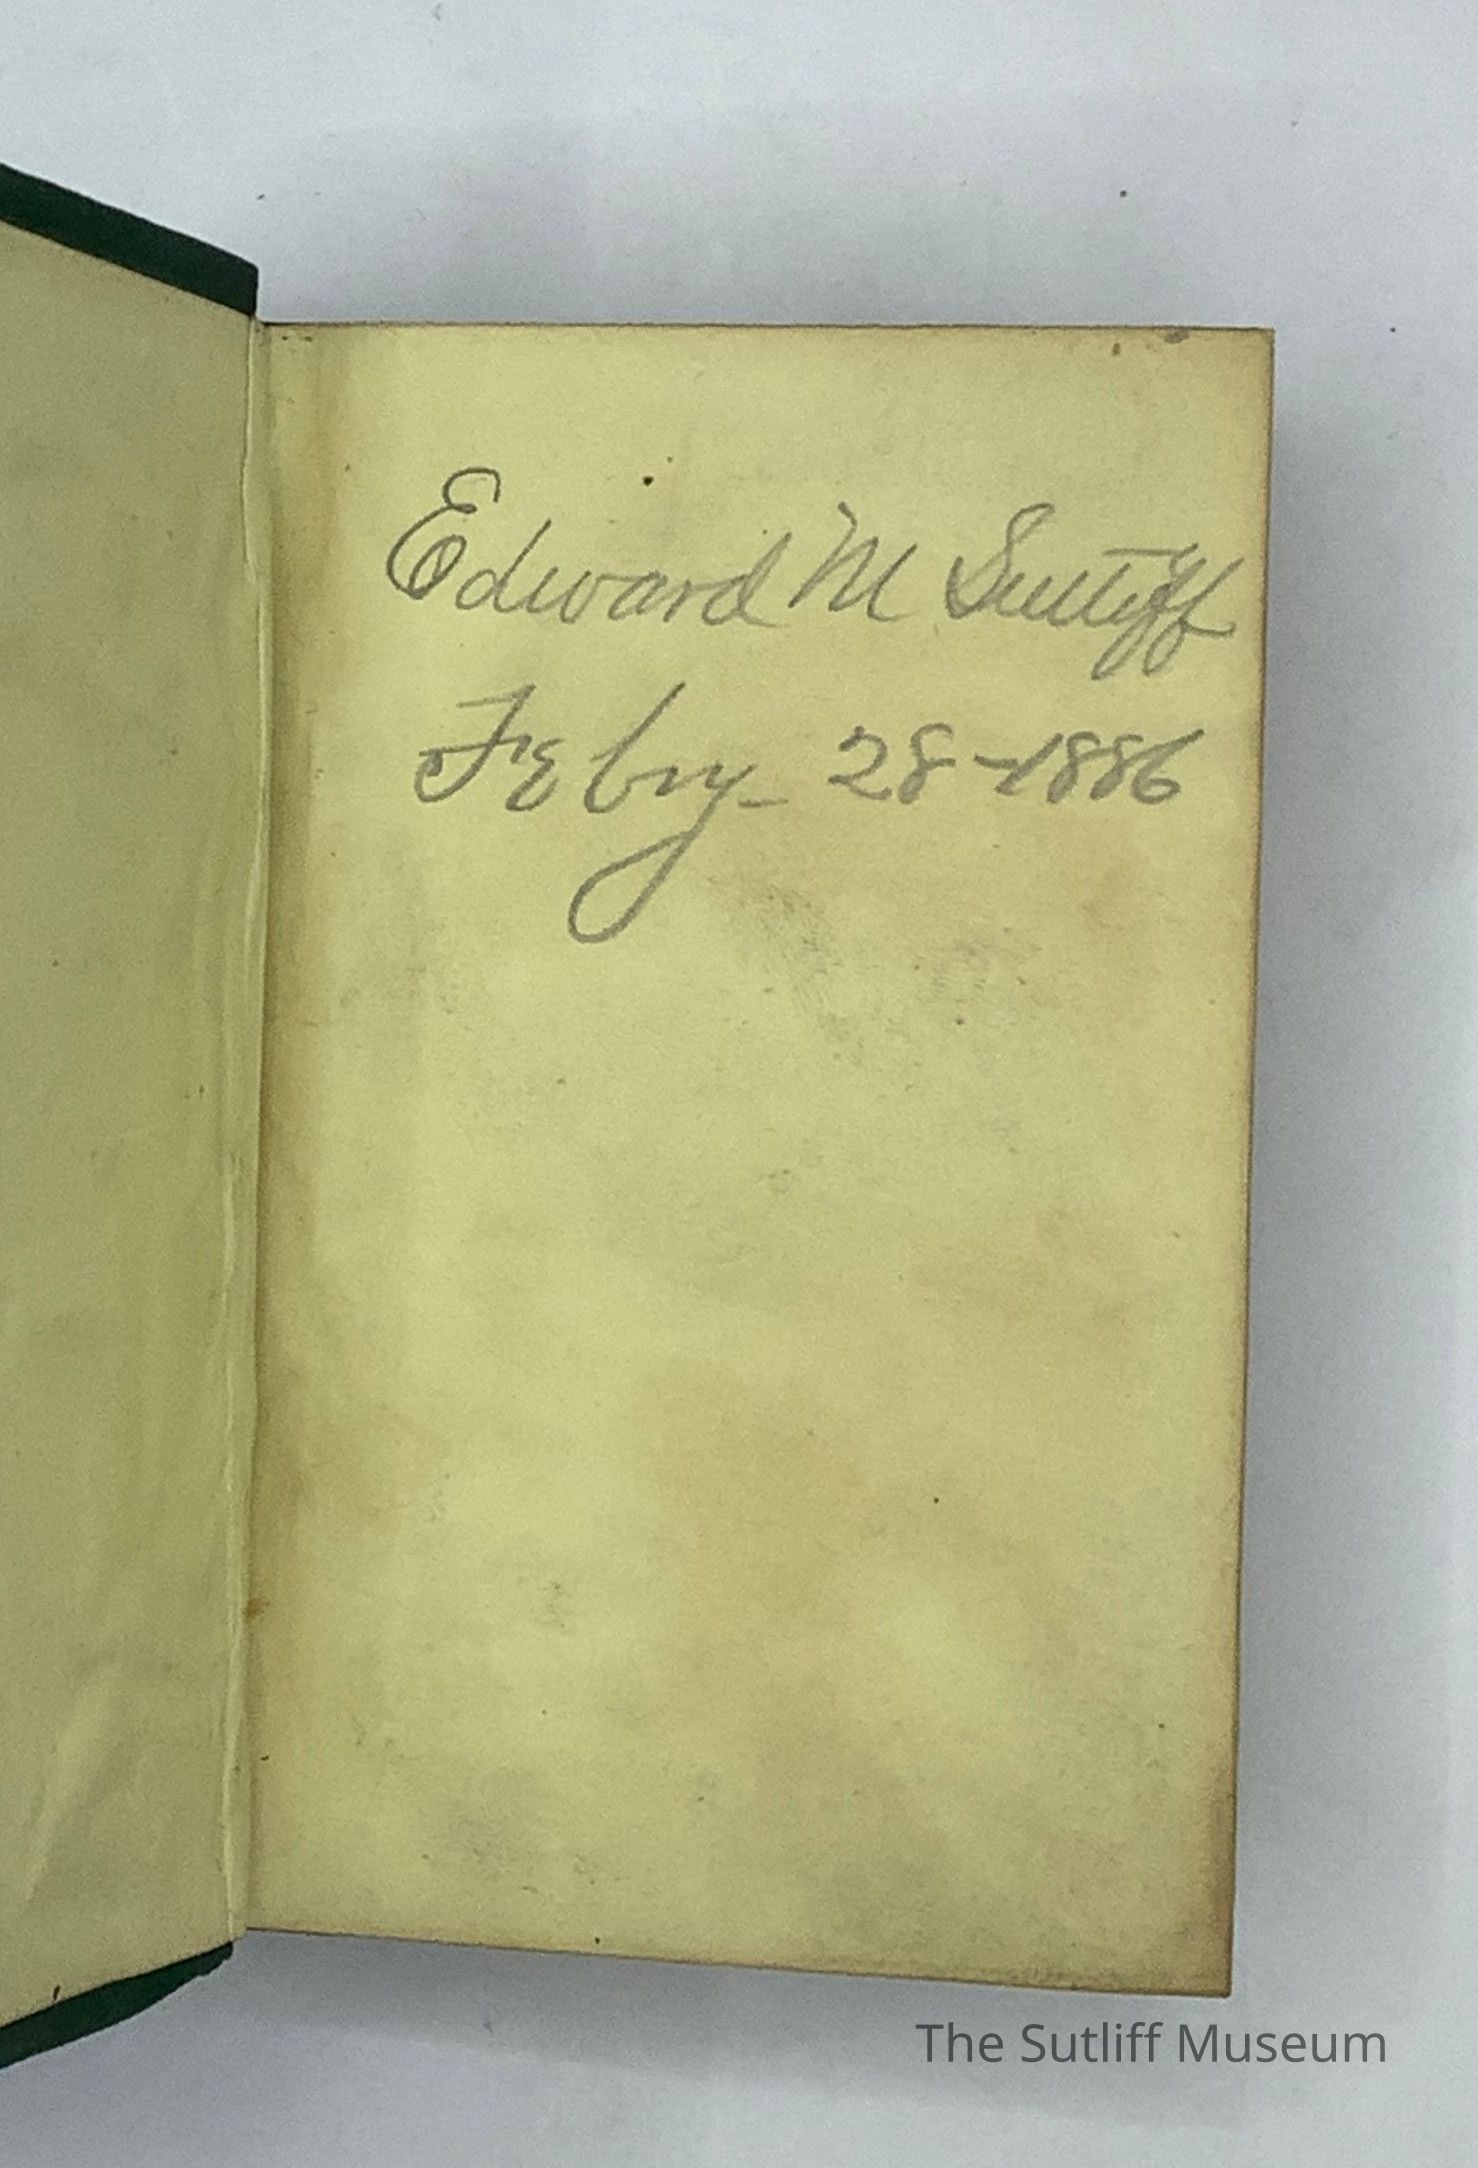 Edward M Sutliff
Febry - 28 - 1886
The Sutliff Museum